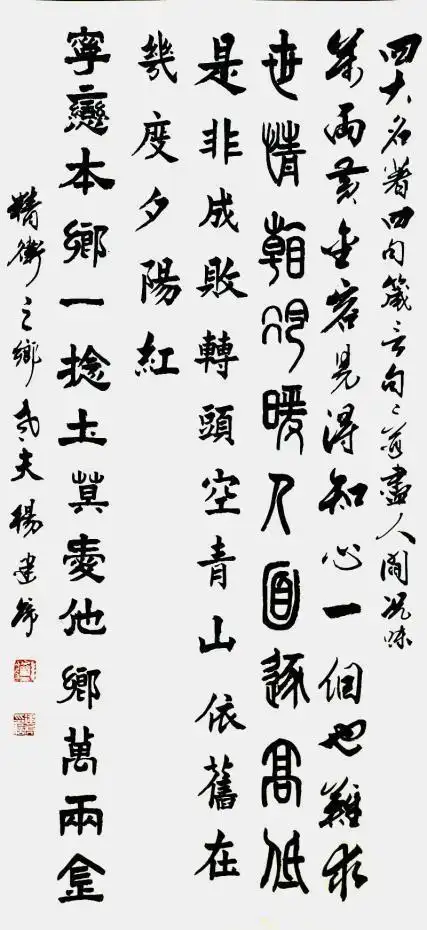 四大名著四句箴言句々道盡人間況味
萬兩黃金容易得知心一個也難求
世情看冷暖人面逐高低
是非成敗轉頭空青山依舊在
幾度夕陽紅
寧戀本鄉一捻土莫愛他鄉萬兩金
精衛之鄉夫楊建